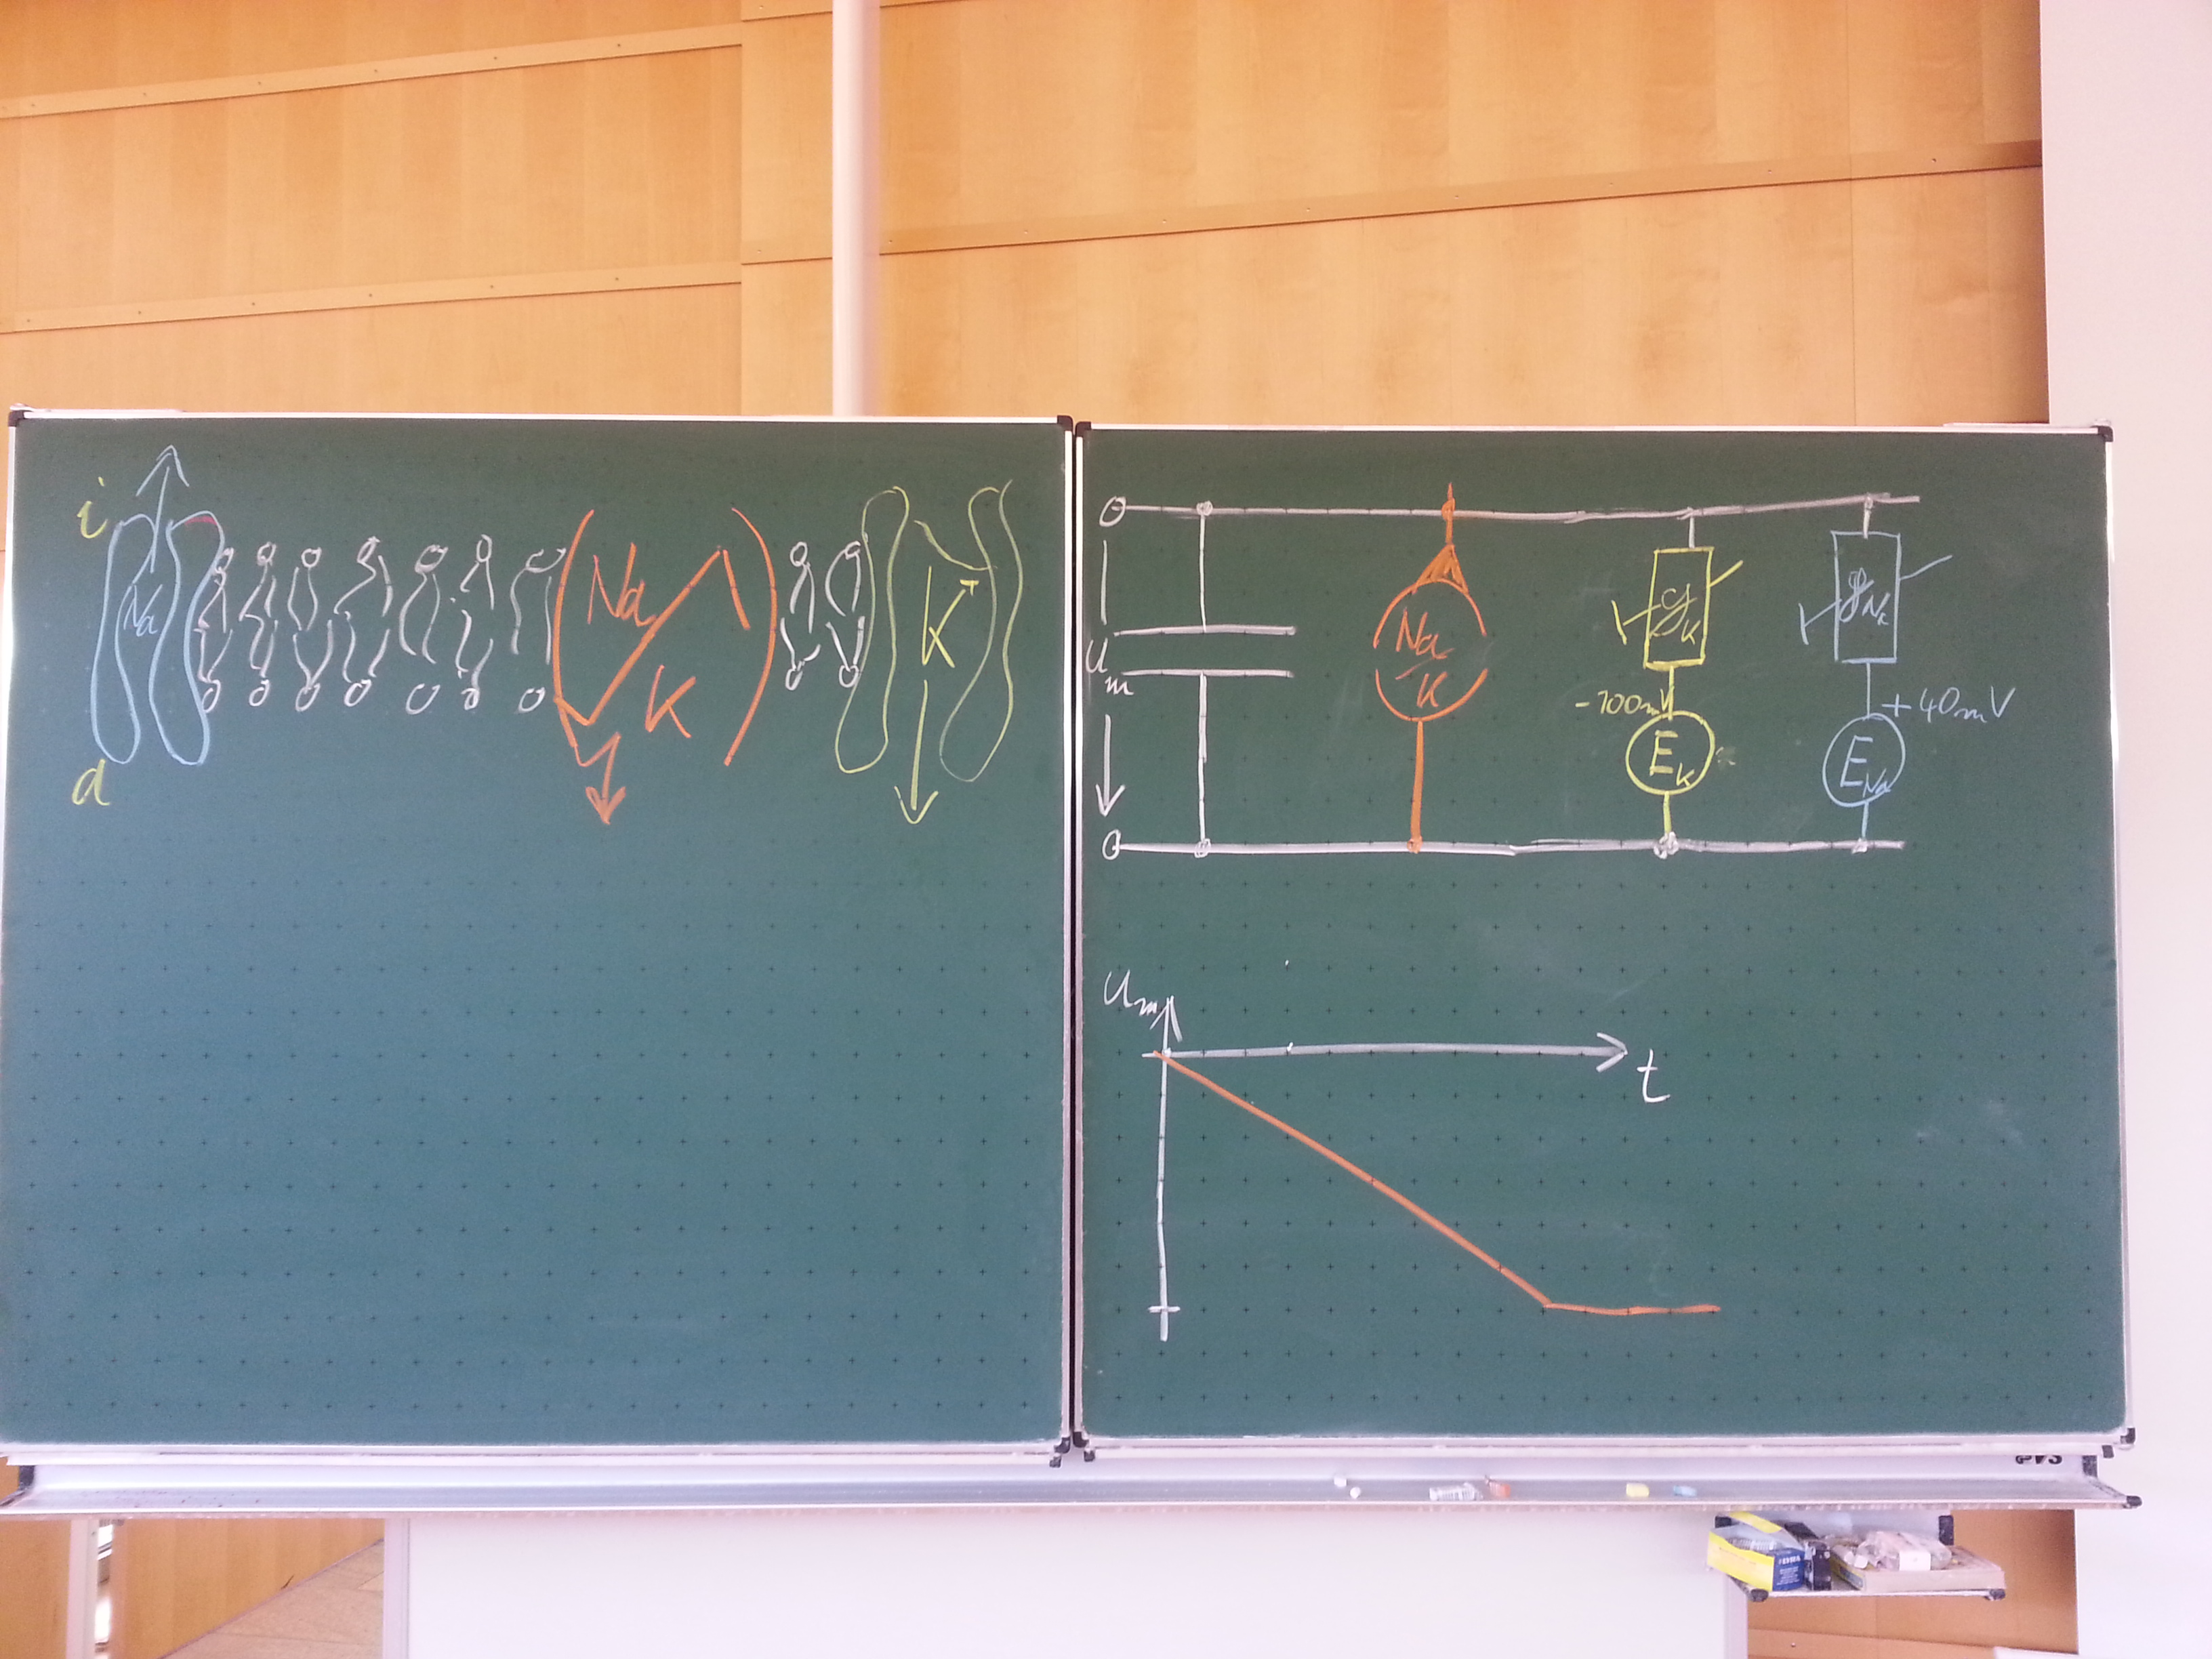 i
Na
Na
K
K+
a
Um
Na
K
gK
gNa
-100mV
EK
+40mV
ENa
Um
t